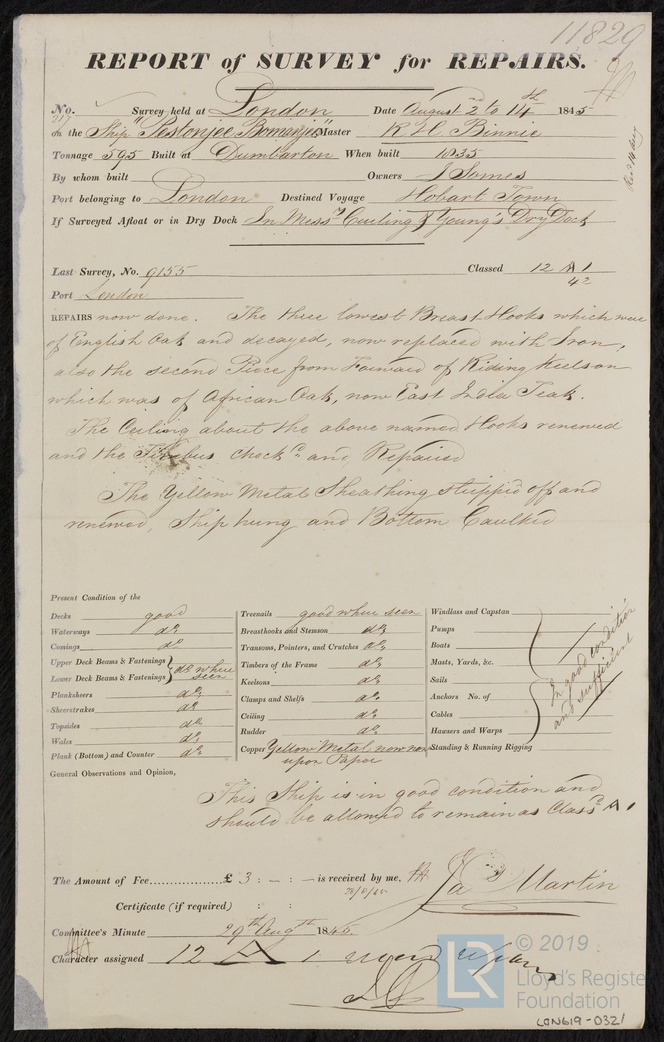 11829
REPORT of SURVEY for REPAIRS.
No. 217 Survey held at London Date August 2nd to 14th 1845
on the Ship "Pestonjee Bomanjee" Master R H C Binnie
Tonnage 595 Built at Dumbarton When built 1835
By whom built Owners J Somes
Port belonging to London Destined Voyage Hobart Town
If Surveyed Afloat or in Dry Dock In Messrs Curling & Young's Dry Dock
Last Survey, No. 9155 Classed 12 A 1
42
Port London
REPAIRS now done. The three lowest Breast Hooks which were
of English Oak and decayed, now replaced with Iron,
also the second Piece from Forward of Riding Keelson
which was of African Oak, now East India Teak.
The Ceiling about the above named Hooks renewed
and the Limbus check'd and Repaired
The Yellow Metal Sheathing stripped off and
renewed, Ship hung and Bottom Caulked
Present Condition of the
Decks good
Waterways do
Comings do
Upper Deck Beams & Fastenings
Lower Deck Beams & Fastenings } do where seen
Planksheers do
Sheerstrakes do
Topsides do
Wales do
Plank (Bottom) and Counter do
Treenails good where seen
Breasthooks and Stemson do
Transoms, Pointers, and Crutches do
Timbers of the Frame do
Keelsons do
Clamps and Shelfs do
Ceiling do
Rudder do
Copper Yellow Metal now new
upon Paper
Windlass and Capstan
Pumps
Boats
Masts, Yards, &c.
Sails
Anchors No. of
Cables
Hawsers and Warps
Standing & Running Rigging
In good condition
and sufficient
General Observations and Opinion,
This Ship is in good condition and
should be allowed to remain as Class'd A 1
The Amount of Fee.................. £ 3 : – : – is received by me,
Certificate (if required) : :
Jas Martin
Committee's Minute 29th Augth 1845.
Character assigned 12 A 1
© 2019
LR Lloyd's Register
Foundation
LON619-0321